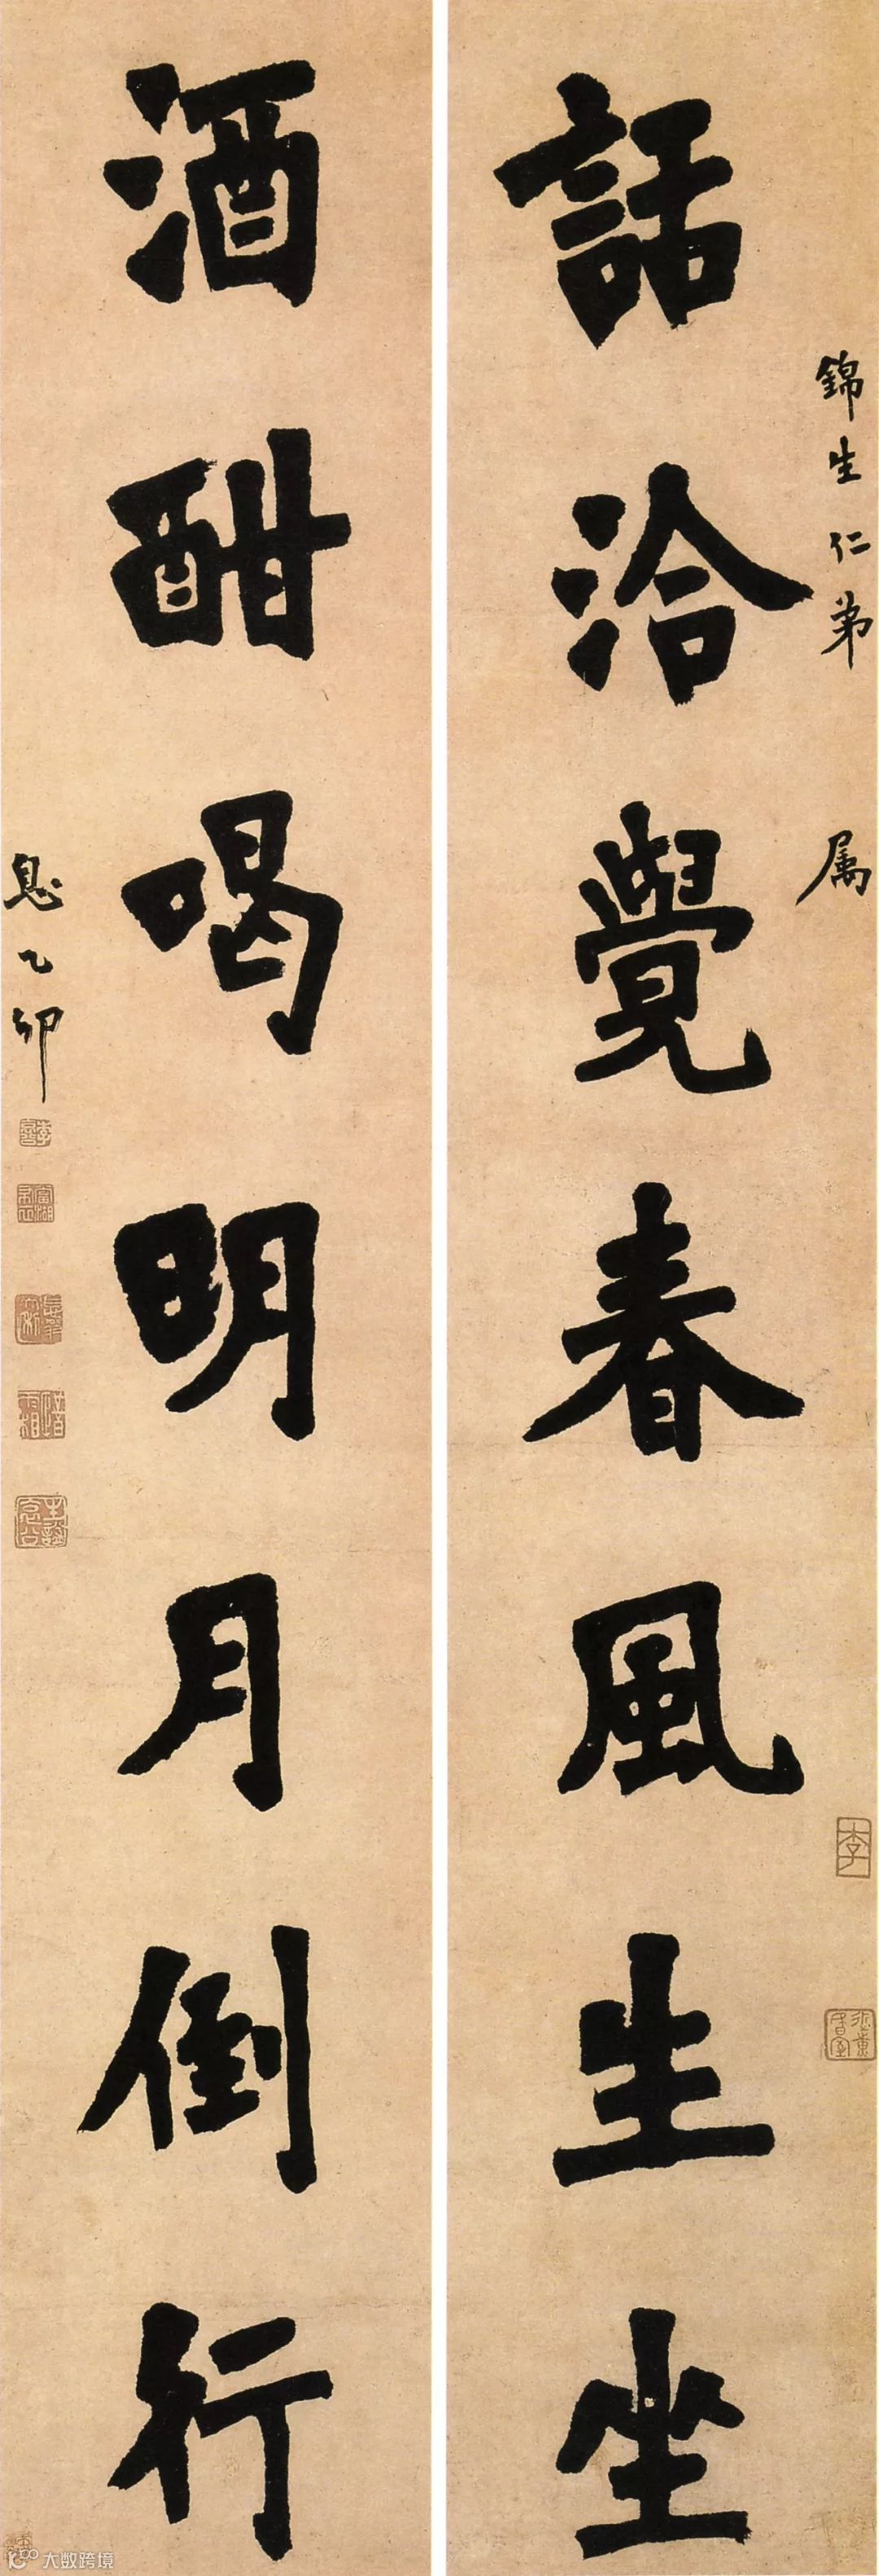 錦生仁弟 属
話洽覺春風生坐
酒酣喝明月倒行
息 乙卯
李
大数跨境